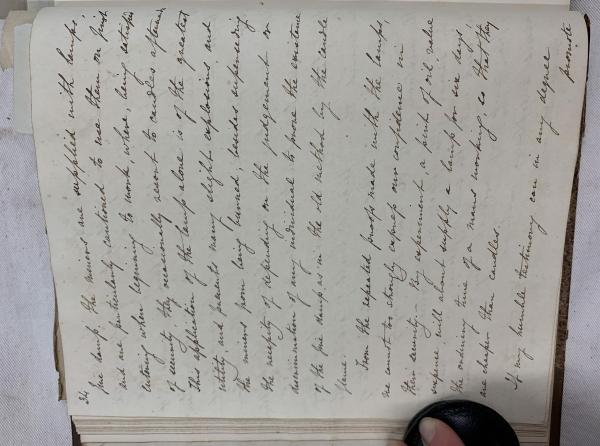 24
fire damp. The miners are supplied with lamps
and are particularly cautioned to use them on first
entering when beginning to work, where, being satisfied
of security they occasionally resort to candles afterwards
This application of the lamp alone is of the greatest
utility, and prevents many slight explosions and
the miners from being burned, besides superseding
the necessity of depending on the judgement or
discrimination of any individual to prove the existence
of the fire damp as in the old method by the candle
flame.
From the repeated proofs made with the lamps,
we cannot too strongly express our confidence in
their security. By experiment, a pint of oil, value
will about supply a lamp for six days,
the ordinary time of a mans working, so that they
are cheaper than candles.
If my humble testimony can in any degree
promote